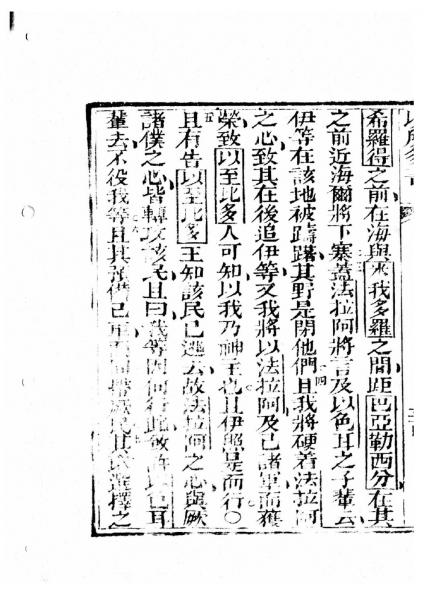 希羅得之前在海與米我多羅之間距巴亞勒西分在其
之前近海爾將下寨蓋法拉阿將言及以色耳之子輩云
伊等在該地被躊躇其野是閉他們且我將硬着法拉阿
之心致其在後追伊等又我將以法拉阿及已諸軍而獲
榮致以至比多人可知以我乃神主也且伊照當是而行〇
五且有告以至比多王知該民已逃去故法拉阿之心與厥
諸僕之心皆轉攻該民且曰我等因何行此致許以色耳
輩去不役我等且其預備己車民其選擇之